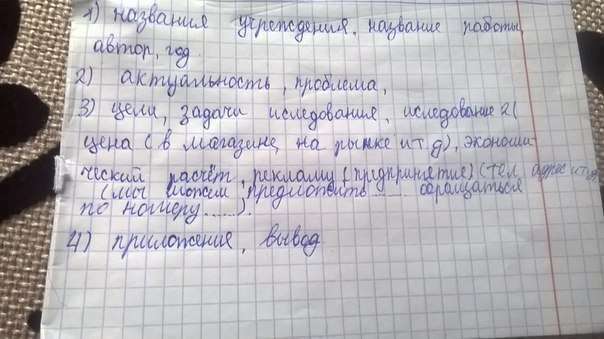 1) названия учреждения, название работы,
автор, год.
2) актуальность, проблема,
3) цели, задачи исследования, исследование 2(
цена (в магазине, на рынке и т.д), экономи-
ческий расчёт, рекламу (предпринятие) (тел, адрес и т.д)
(мы можем предложить ...... обращаться
по номеру ......).
4) приложения, вывод